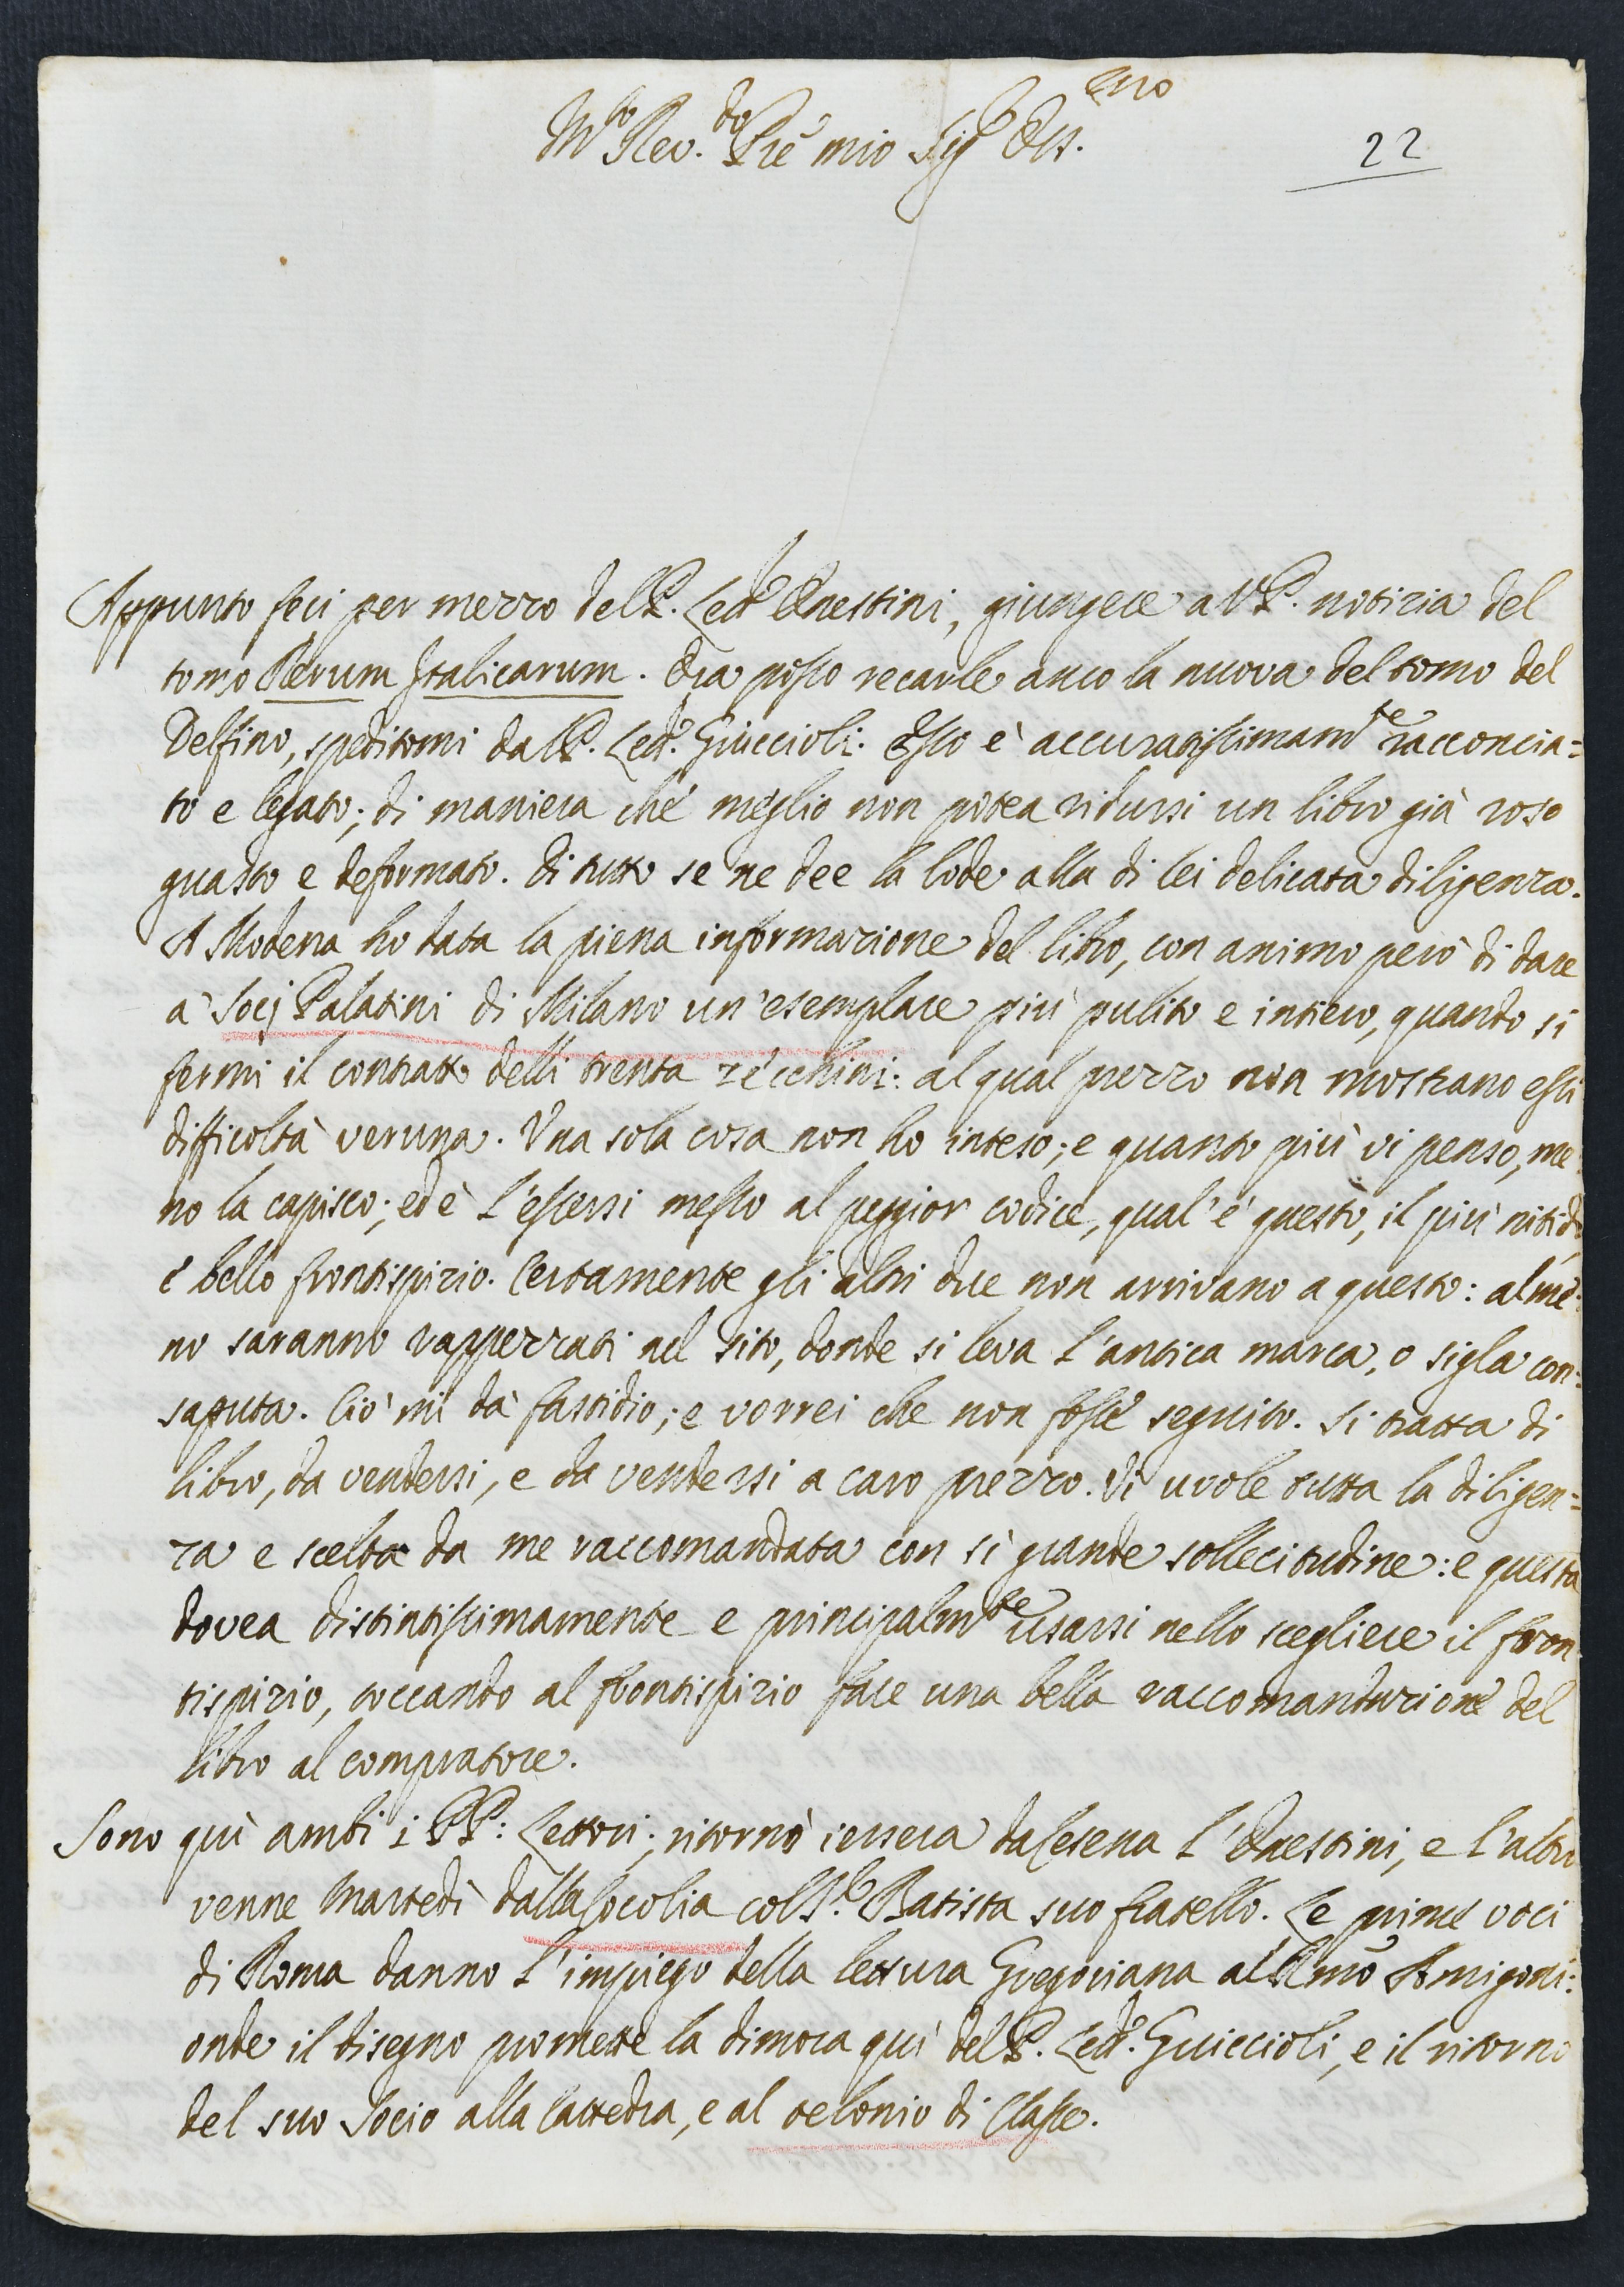 M.to Rev.do Prê mio Sig.r Oss.mo
22
Appunto feci per mezzo del P. Lett.e Enestini, giungere a V. P. notizia del
tomo Rerum Italicarum. Ora posso recarle anco la nuova del tomo del
Delfino, speditomi dal P. Lett.e Guiccioli. Esso è accuratissimam.te racconcia=
to e legato; di maniera che meglio non potea ridursi un libro già roso
guasto e deformato. Di tutto se ne dee la lode alla di lei delicata diligenza.
A Modena ho data la piena informazione del libro, con animo però di dare
a' Socj Palatini di Milano un'esemplare più pulito e intiero, quando si
fermi il contratto delli trenta zecchini: al qual prezzo non mostrano essi
difficoltà veruna. Una sola cosa non ho inteso; e quanto più vi penso, me=
no la capisco; ed è l'essersi messo al peggior codice, qual'è questo, il più nitido,
e bello frontispizio. Certamente gli altri due non arrivano a questo: alme=
no saranno rappezzati nel sito, donde si leva l'antica marca, o sigla con=
saputa. Ciò mi dà fastidio; e vorrei che non fosse seguito. Si tratta di
libro, da vendersi, e da vendersi a caro prezzo. Vi vuole tutta la diligen=
za e scelta da me raccomandata con sì grande sollecitudine: e questa
dovea distintissimamente e principalm.te usarsi nello scegliere il fron
tispizio, toccando al frontispizio fare una bella raccomandazione del
libro al compratore.
Sono quì ambi i PP: Lettori; ritornò iersera da Cesena l'Enestini, e l'altro
venne Martedì dalla Cocolia col S.r Batista suo fratello. Le prime voci
di Roma danno l'impiego della lettura Gregoriana al Rmõ Amigoni:
onde il disegno promette la dimora quì del P. Lett.e Guiccioli, e il ritorno
del suo Socio alla Cattedra, e al telonio di Classe.